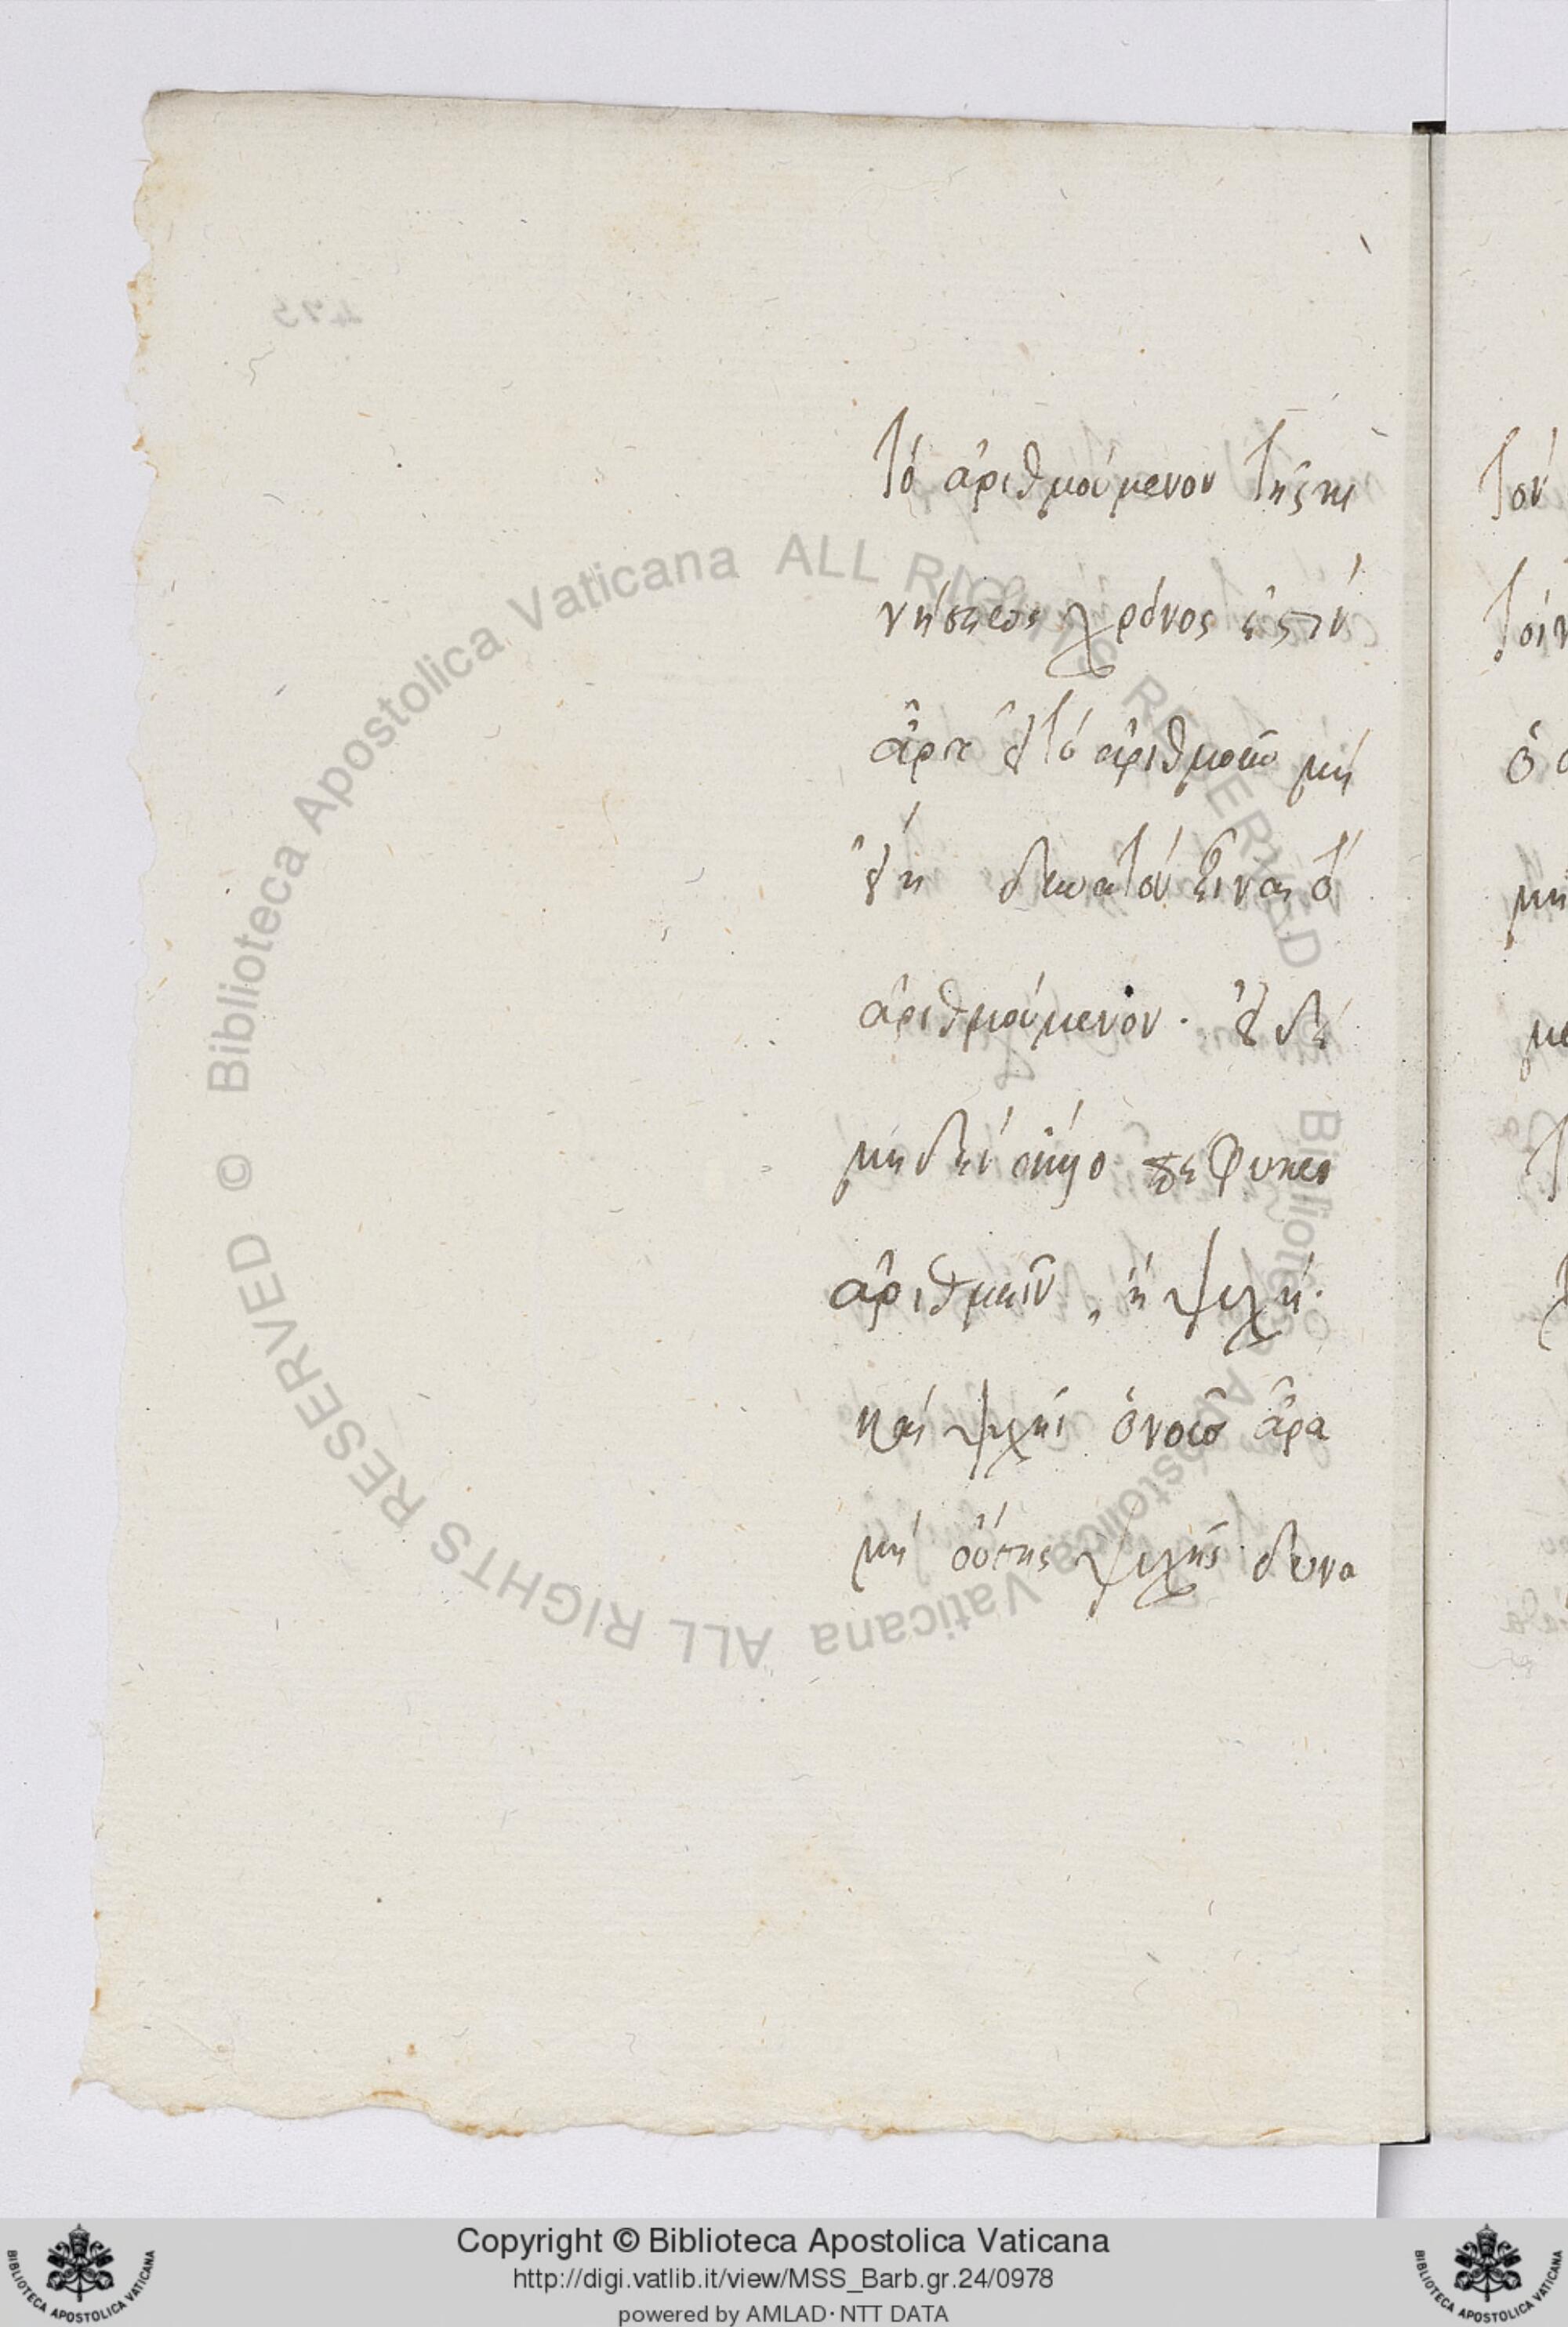 τὸ ἀριθμούμενον τῆς κι
νήσεως χρόνος ἐστὶν
ἆρα εἰ τὸ ἀριθμοῦν μὴ
εἴη δυνατὸν εἶναι τὸ
ἀριθμούμενον. εἰ δὲ
μηδὲν ἄλλο πέφυκεν
ἀριθμεῖν, ἢ ψυχὴ.
καὶ ψυχῆς ὁ νοῦς ἆρα
μὴ οὔσης ψυχῆς δυνα
473
© Biblioteca Apostolica Vaticana ALL RIGHTS RESERVED
© Biblioteca Apostolica Vaticana ALL RIGHTS RESERVED
Copyright © Biblioteca Apostolica Vaticana
http://digi.vatlib.it/view/MSS_Barb.gr.24/0978
powered by AMLAD · NTT DATA
BIBLIOTECA APOSTOLICA VATICANA
BIBLIOTECA APOSTOLICA VATICANA